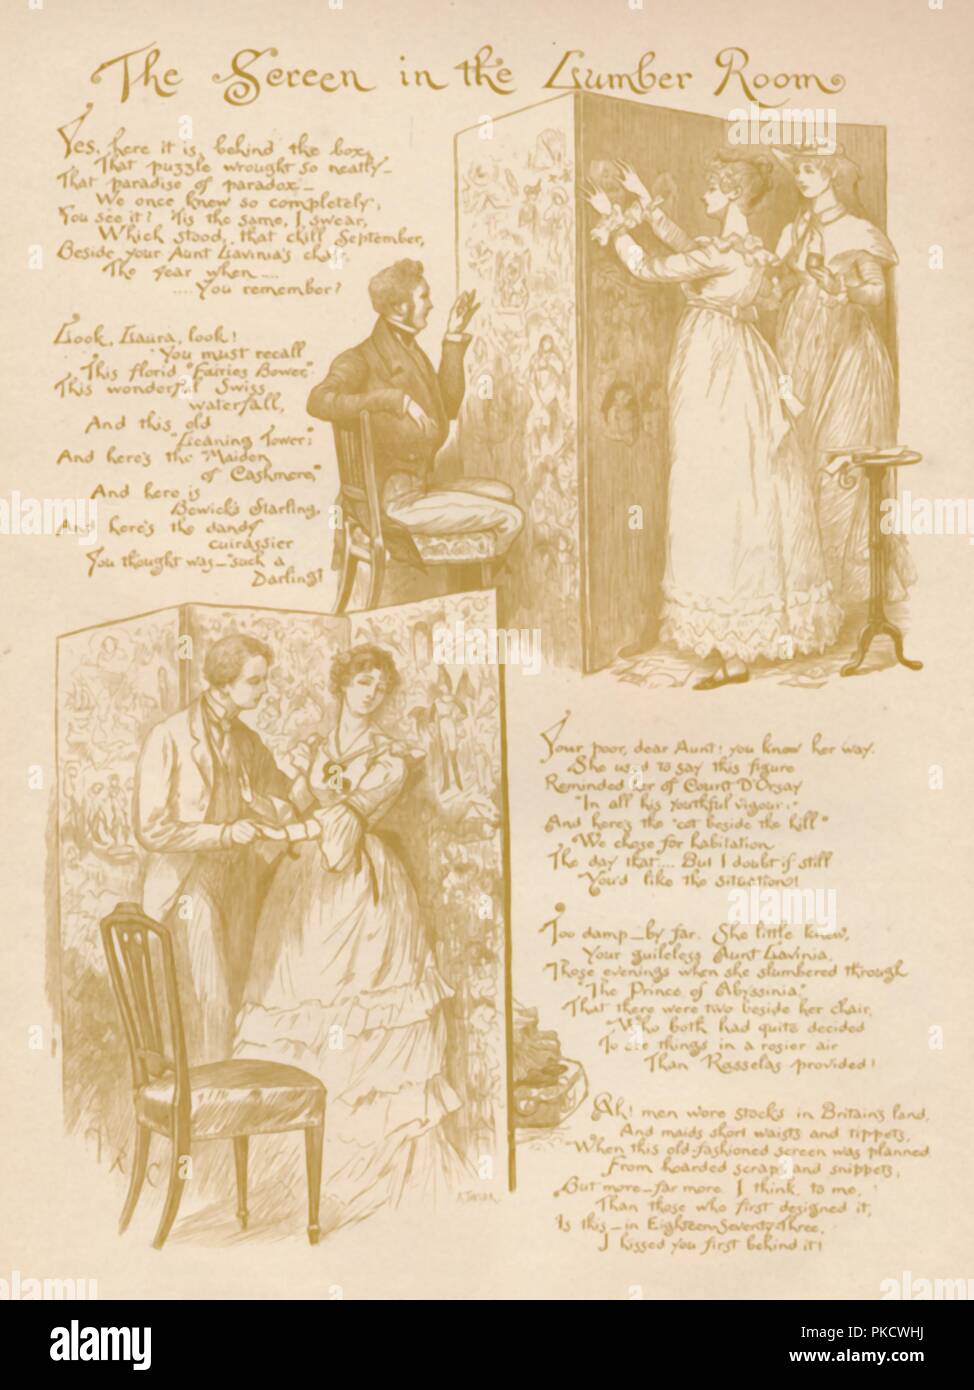 The Screen in the Lumber Room
Yes, here it is, behind the box,
That puzzle wrought so neatly–
That paradise of paradox–
We once knew so completely;
You see it? 'Tis the same, I swear,
Which stood, that chill September,
Beside your Aunt Lavinia's chair
The year when ....
.... You remember?
Look, Laura, look!
You must recall
This florid "Fairies Bower,"
This wonderful Swiss
waterfall,
And this old
"Leaning Tower;"
And here's the "Maiden
of Cashmere,"
And here is
Bewick's Starling,
And here's the dandy
cuirassier
You thought was–"such a
Darling!"
Your poor, dear Aunt! you know her way.
She used to say this figure
Reminded her of Count D'Orsay
"In all his youthful vigour;"
And here's the "cot beside the hill"
We chose for habitation
The day that .... But I doubt if still
You'd like the situation!
Too damp–by far. She little knew,
Your guileless Aunt Lavinia,
Those evenings when she slumbered through
"The Prince of Abyssinia,"
That there were two beside her chair,
Who both had quite decided
To see things in a rosier air
Than Rasselas provided!
Ah! men wore stocks in Britain's land,
And maids short waists and tippets,
When this old-fashioned screen was planned
From hoarded scraps and snippets;
But more–far more, I think, to me,
Than those who first designed it,
Is this–in Eighteen Seventy-Three,
I kissed you first behind it!
alamy
Image ID: PKCWHJ
www.alamy.com